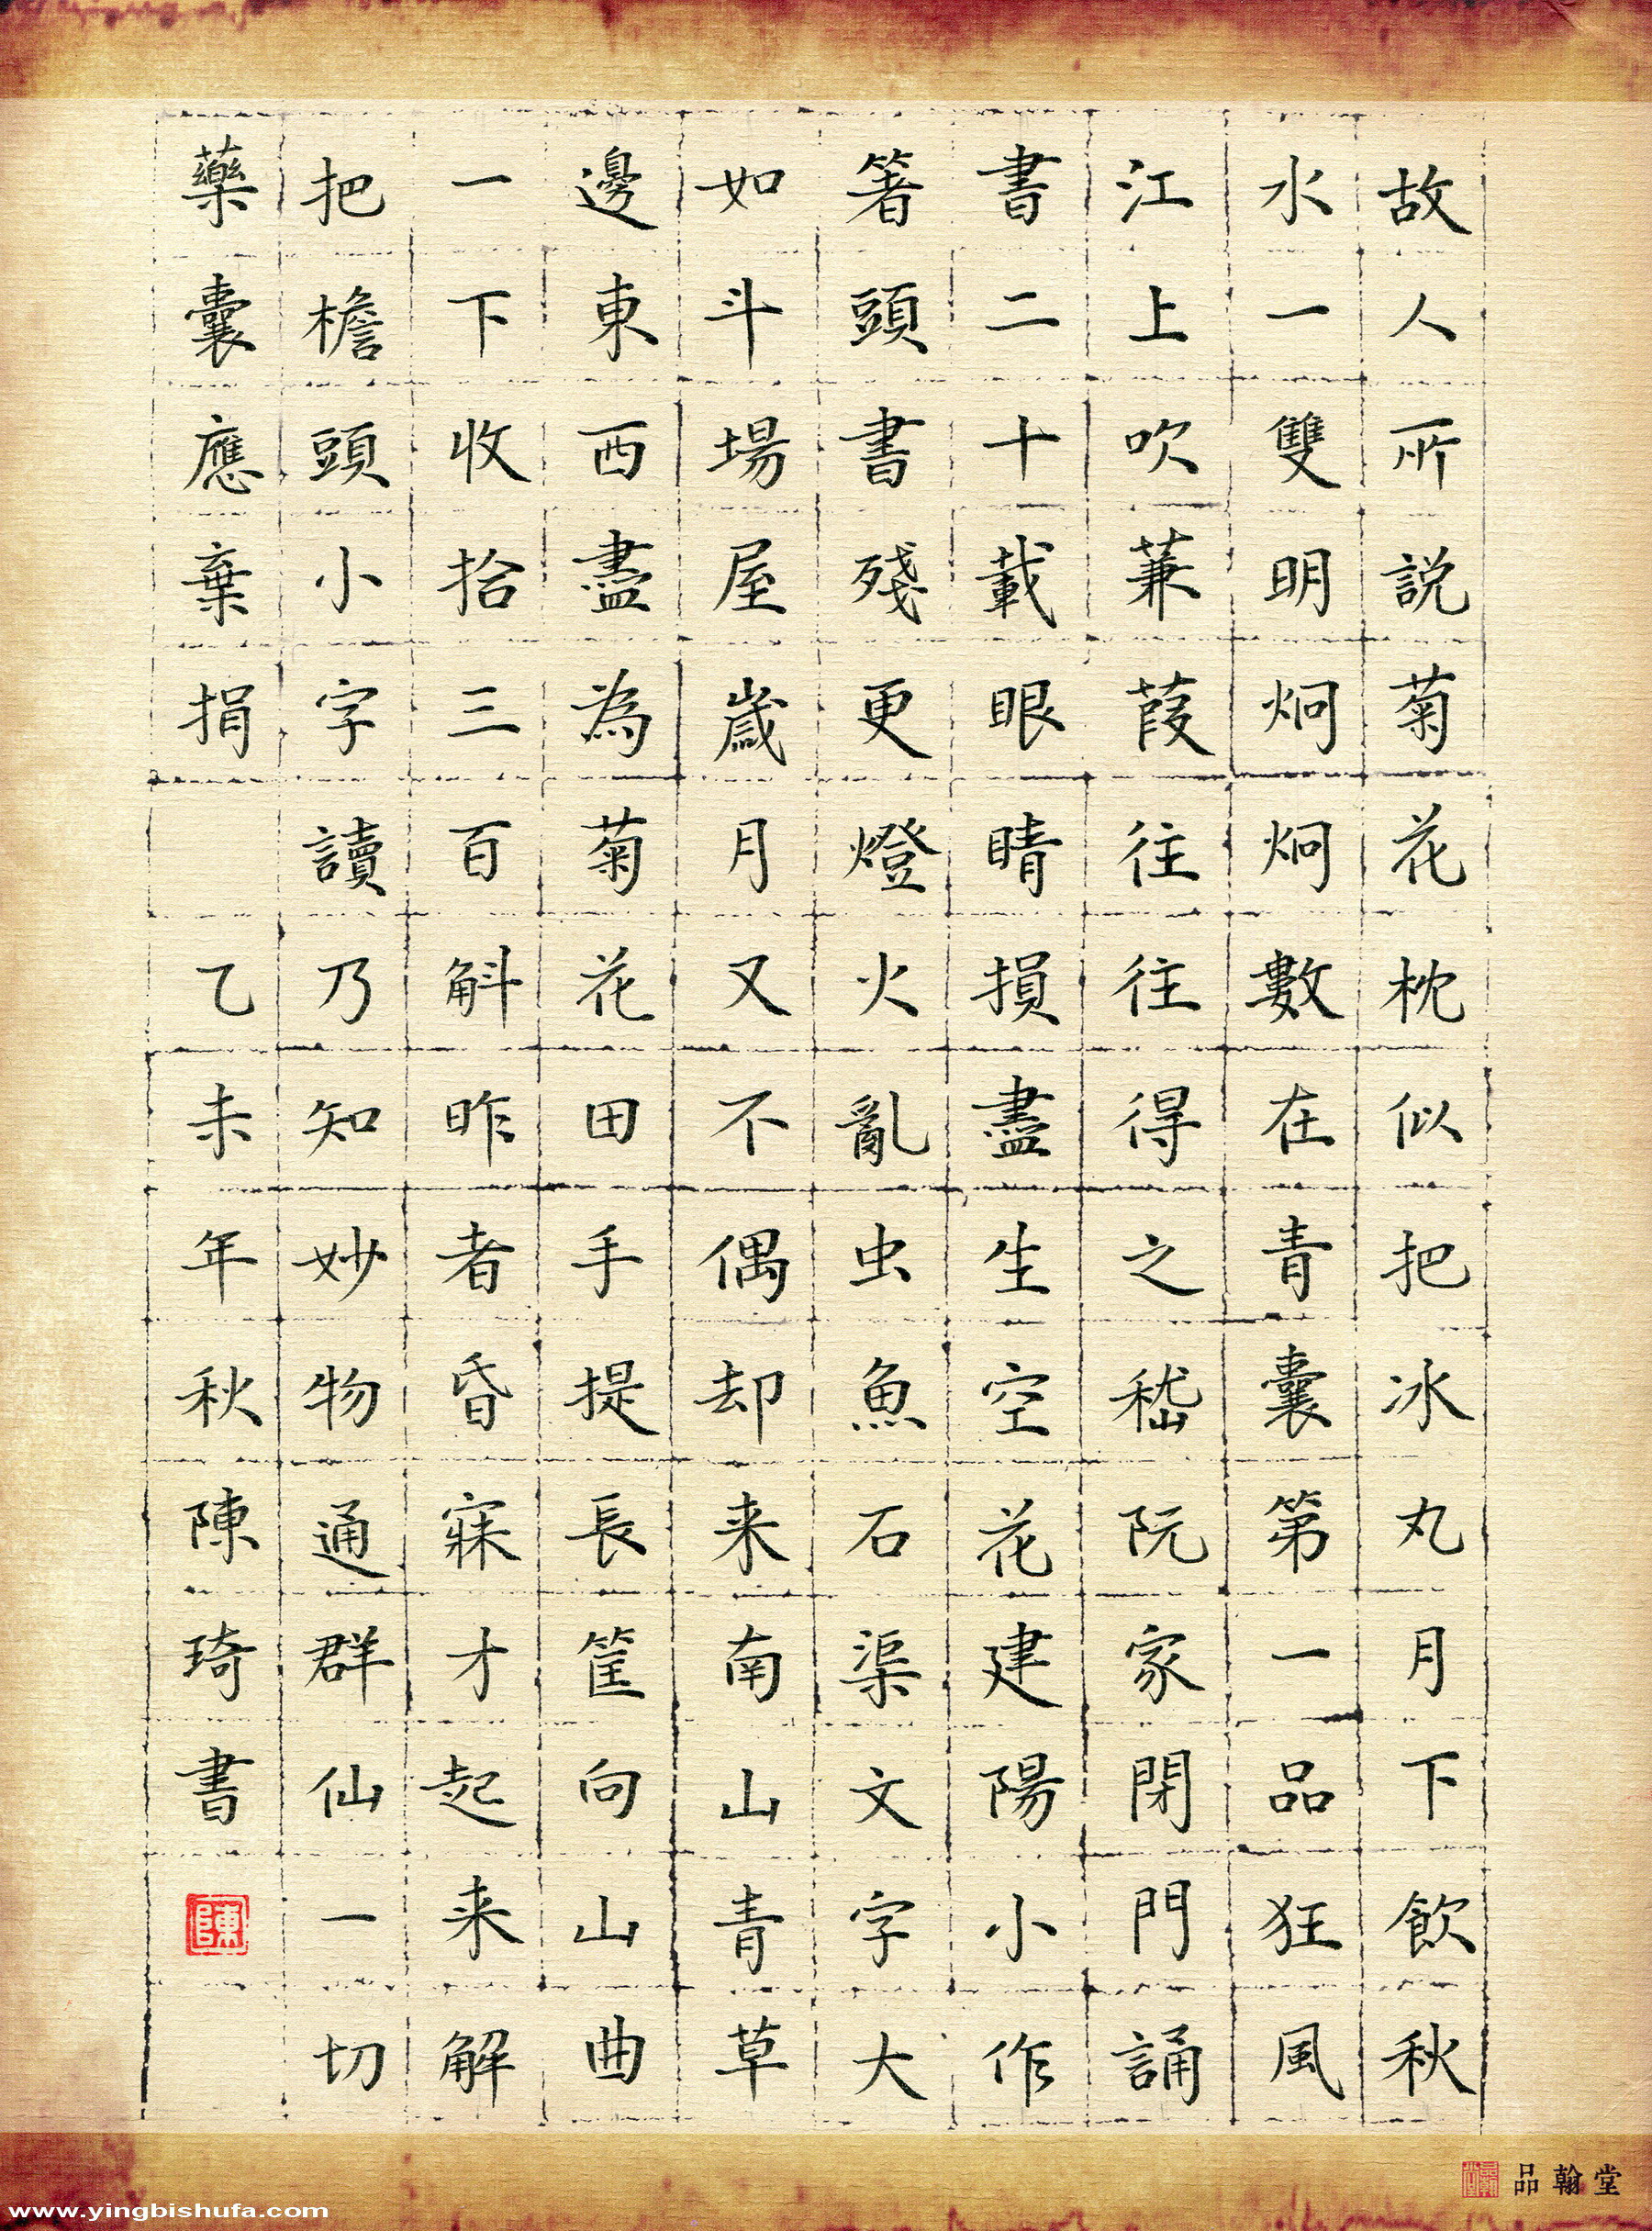 故人所說菊花枕似把冰丸月下飲秋
水一雙明炯炯數在青囊第一品狂風
江上吹蒹葭往往得之嵇阮家閉門誦
書二十載眼睛損盡生空花建陽小作
箸頭書殘更燈火亂虫魚石渠文字大
如斗場屋歲月又不偶却来南山青草
邊東西盡為菊花田手提長筐向山曲
一下收拾三百斛昨者昏寐才起来解
把檐頭小字讀乃知妙物通群仙一切
藥囊應棄捐
乙未年秋陳琦書
陳
品翰堂
www.yingbishufa.com